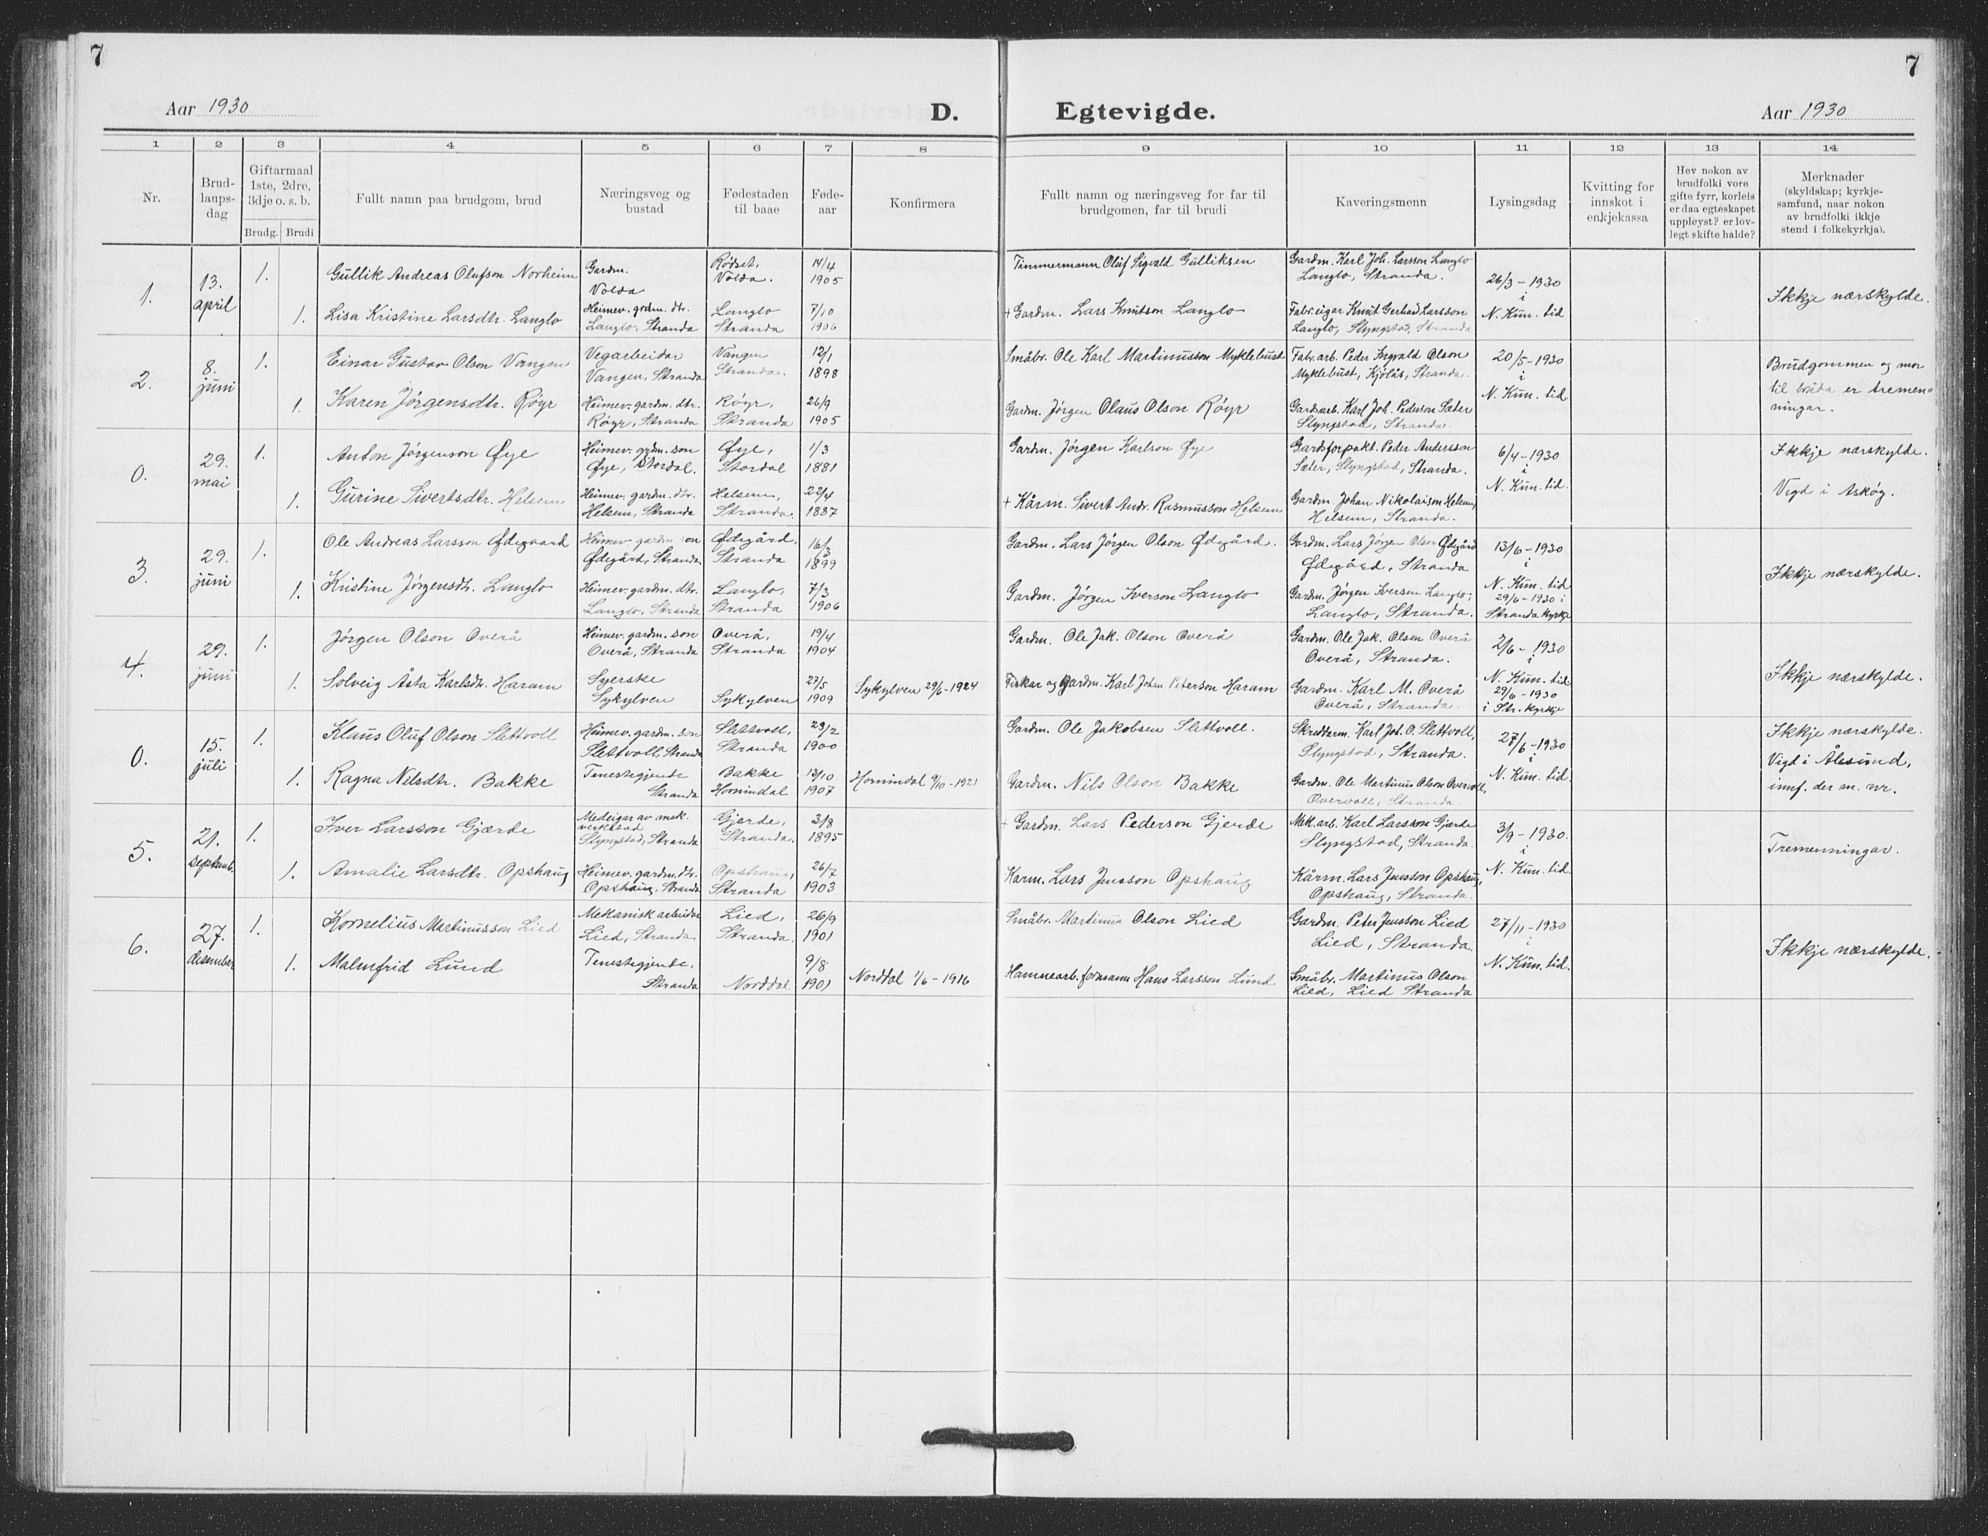 7
7
Aar 1930
D.
Egtevigde.
Aar 1930
1 2 3 4 5 6 7 8 9 10 11 12 13 14
Nr.
Brud-
laups-
dag
Giftarmaal
1ste, 2dre,
3dje o. s. b.
Brudg. Brudi
Fullt namn paa brudgom, brud
Næringsveg og
bustad
Fødestaden
til baae
Føde-
aar
Konfirmera
Fullt namn og næringsveg for far til
brudgomen, far til brudi
Kaveringsmenn
Lysingsdag
Kvitting for
innskot i
enkjekassa
Hev nokon av
brudfolki vore
gifte fyrr, korleis
er daa egteskapet
uppleyst? er lov-
legt skifte halde?
Merknader
(skyldskap; kyrkje-
samfund, naar nokon
av brudfolki ikkje
stend i folkekyrkja).
1.
13.
april
1.
Gullik Andreas Olufson Norheim
Gardm.
Volda
Rødset,
Volda.
14/4
1905
Timmermann Oluf Sigvald Gulliksen
Gardm. Karl Joh. Larsson Langlo
Langlo, Stranda.
26/3 - 1930
i
N. Kun. tid
Ikkje nærskylde.
1.
Lisa Kristine Larsdtr. Langlo
Heimev. gardm. dtr.
Langlo, Stranda
Langlo
Stranda
7/10
1906
+ Gardm. Lars Knutson Langlo
Fabr.eigar Knut Gerhad Larsson
Langlo, Slyngstad, Stranda
2.
8.
juni
1.
Einar Gustav Olson Vangen
Vegarbeidar
Vangen, Stranda
Vangen
Stranda.
12/1
1898
Småbr. Ole Karl Martinusson Myklebust
Fabr. arb. Peder Ingvald Olson
Myklebust, Kjølås, Stranda.
20/5 - 1930
i
N. Kun. tid
Brudgommen og mor
til bruda er tremen-
ningar.
1.
Karen Jørgensdtr. Røyr
Heimev. gardm. dtr.
Røyr, Stranda
Røyr,
Stranda
26/9
1905
Gardm. Jørgen Olaus Olson Røyr
Gardsarb. Karl Joh. Pederson Sæter
Slyngstad, Stranda.
0.
29.
mai
1.
Anton Jørgenson Øye
Heimev. gardm. son
Øye, Stordal.
Øye,
Stordal
1/3
1881
Gardm. Jørgen Karlson Øye
Gardsforpakt. Peder Andersson
Sæter, Slyngstad, Stranda.
6/4 - 1930
i
N. Kun. tid
Ikkje nærskylde.
Vigd i Askøy.
1.
Gurine Sivertsdtr. Helsem
Heimev. gardm. dtr.
Helsem, Stranda
Helsem,
Stranda.
22/4
1887
+ Kårm. Sivert Andr. Rasmusson Helsem
Gardm. Johan Nikolaison Helsem,
Helsem, Stranda.
3.
29.
juni
1.
Ole Andreas Larsson Ødegaard
Heimev. gardm. son
Ødegård, Stranda.
Ødegård,
Stranda
16/3
1899
Gardm. Lars Jørgen Olson Ødegård.
Gardm. Lars Jørgen Olson Ødegård
Ødegård, Stranda
13/6 - 1930
i
N. Kun. tid
29/6 - 1930 i
Stranda kyrkje
Ikkje nærskylde.
1.
Kristine Jørgensdtr. Langlo
Heimev. gardm. dtr.
Langlo, Stranda
Langlo,
Stranda
7/3
1906
Gardm. Jørgen Iverson Langlo
Gardm. Jørgen Iversen Langlo,
Langlo, Stranda.
4.
29.
juni
1.
Jørgen Olson Overå
Heimev. gardm. son
Overå, Stranda
Overå,
Stranda
19/4
1904
Gardm. Ole Jak. Olson Overå
Gardm. Ole Jak. Olson Overå
Overå, Stranda.
2/6 - 1930
i
N. Kun. tid
29/6 - 1930
i Str. kyrkje
Ikkje nærskylde.
1.
Solveig Åsta Karlsdtr. Haram
Syerske
Sykylven
Sykylven
27/5
1909
Sykylven 29/6 - 1924
Fiskar og gardm. Karl Johan Peterson Haram
Gardm. Karl M. Overå
Overå, Stranda.
0.
15.
juli
1.
Klaus Oluf Olson Slettvoll
Heimev. gardm. son
Slettvoll, Stranda
Slettvoll,
Stranda
23/2
1900
Gardm. Ole Jakobsen Slettvoll.
Skreddarm. Karl Joh. O. Slettvoll,
Slyngstad, Stranda.
27/6 - 1930
i
N. Kun. tid
Ikkje nærskylde.
Vigd i Ålesund,
innf. der m. nr.
1.
Ragna Nilsdtr. Bakke
Tenestegjende
Stranda
Bakke
Hornindal
13/10
1907
Hornindal 9/10 - 1921
Gardm. Nils Olson Bakke
Gardm. Ole Martinus Olson Overvoll,
Overvoll, Stranda.
5.
21.
septemb.
1.
Iver Larsson Gjærde
Medeigar av mek.
verkstad
Slyngstad, Stranda
Gjerde,
Stranda.
3/8
1895
+ Gardm. Lars Pederson Gjerde
Mek. arb. Karl Larsson Gjærde
Slyngstad, Stranda.
3/9 - 1930.
i
N. Kun. tid.
Tremenningar.
1.
Amalie Larsdtr. Opshaug
Heimev. gardm. dtr.
Opshaug, Stranda
Opshaug,
Stranda
26/7
1903
Kårm. Lars Jensson Opshaug
Kårm. Lars Jensson Opshaug,
Opshaug, Stranda.
6.
27.
desember
1.
Kornelius Martinusson Lied
Mekanisk arbeidar
Lied, Stranda.
Lied,
Stranda.
26/9
1901
Småbr. Martinus Olson Lied
Gardm. Peter Jensson Lied
Lied, Stranda.
27/11 - 1930
i
N. Kun. tid.
Ikkje nærskylde.
1.
Malmfrid Lund
Tenestegjende.
Stranda
Norddal
9/8
1901
Norddal 1/6 - 1916
Hamnearb. formann Hans Larsson Lund
Småbr. Martinus Olson
Lied, Lied Stranda